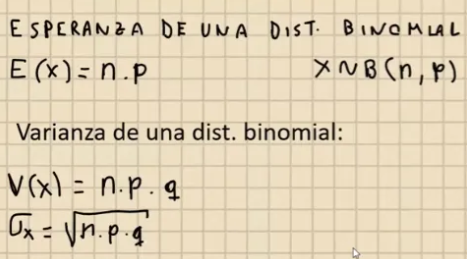 ESPERANZA DE UNA DIST. BINOMIAL
E(x) = n.p X~B(n,p)
Varianza de una dist. binomial:
V(x) = n.p.q
σx = √n.p.q